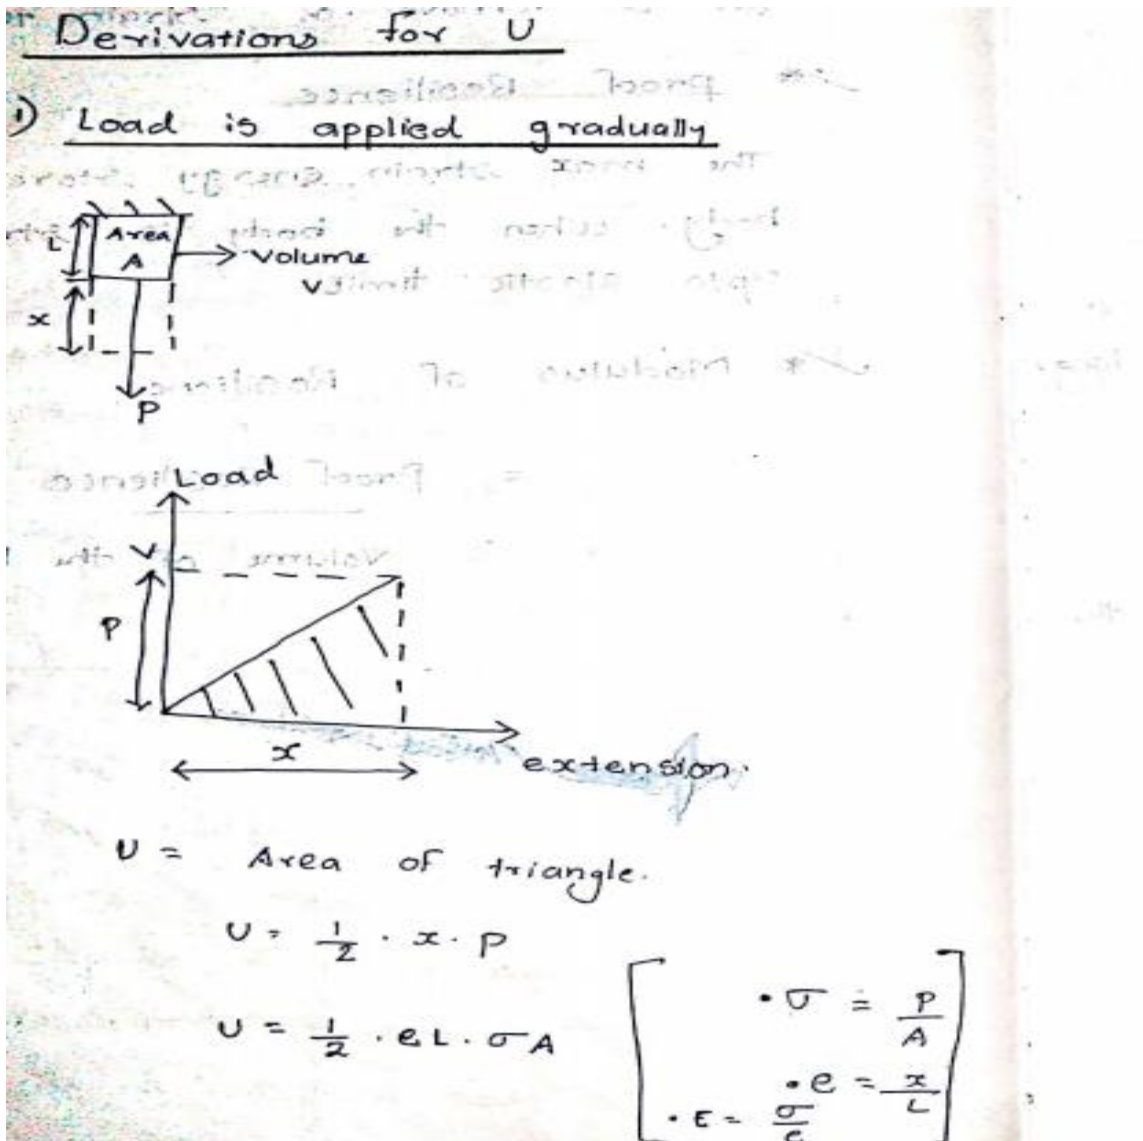 Derivations for U
1) Load is applied gradually
L
Area
A
Volume
V
x
P
Load
P
x
extension.
U = Area of triangle.
U = 1/2 · x · P
U = 1/2 · eL · σA
· σ = P/A
· e = x/L
· E = σ/e